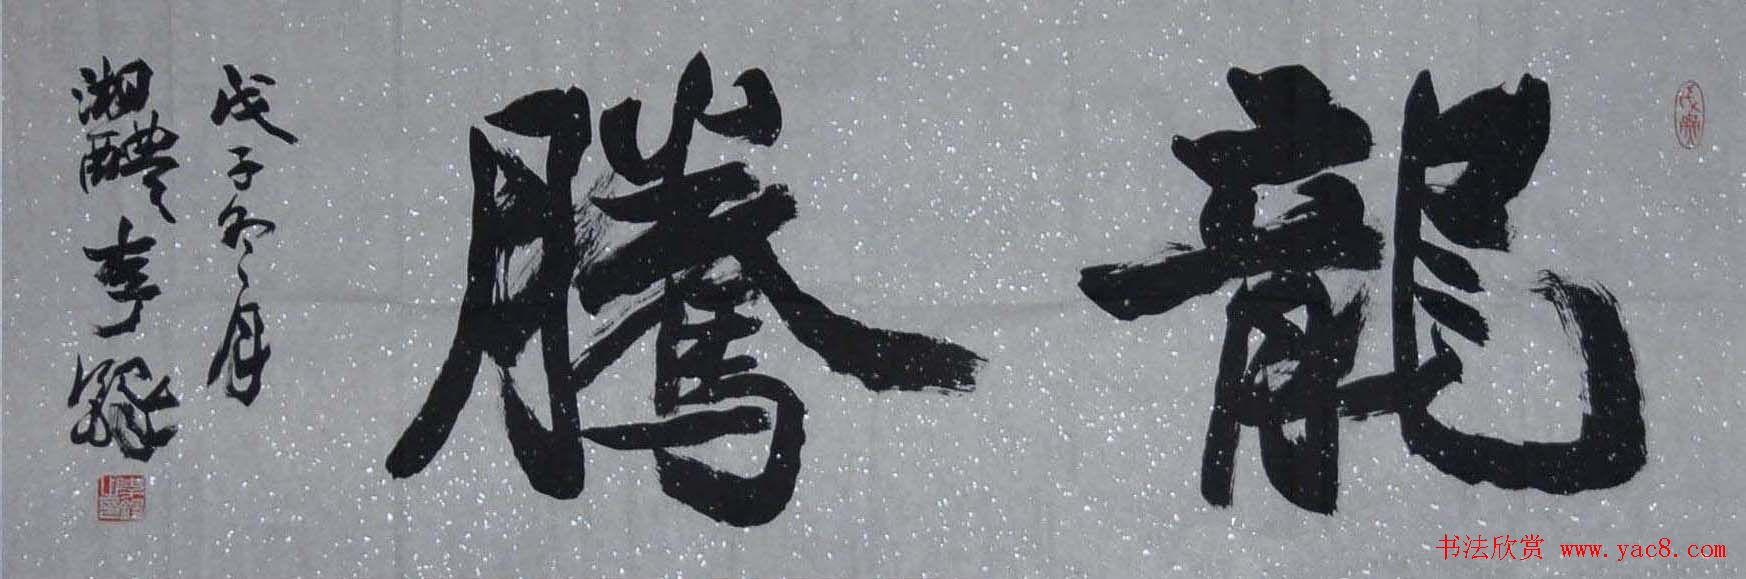 龍騰
戊子冬月
湘醴李
书法欣赏 www.yac8.com